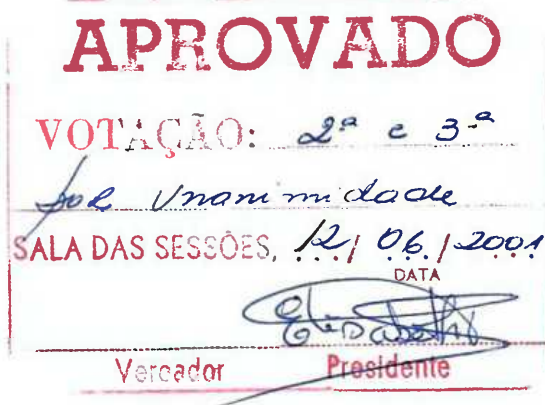 APROVADO
VOTAÇÃO: 2ª e 3ª
por Unanimidade
SALA DAS SESSÕES, 12/06/2001
DATA
Vereador Presidente